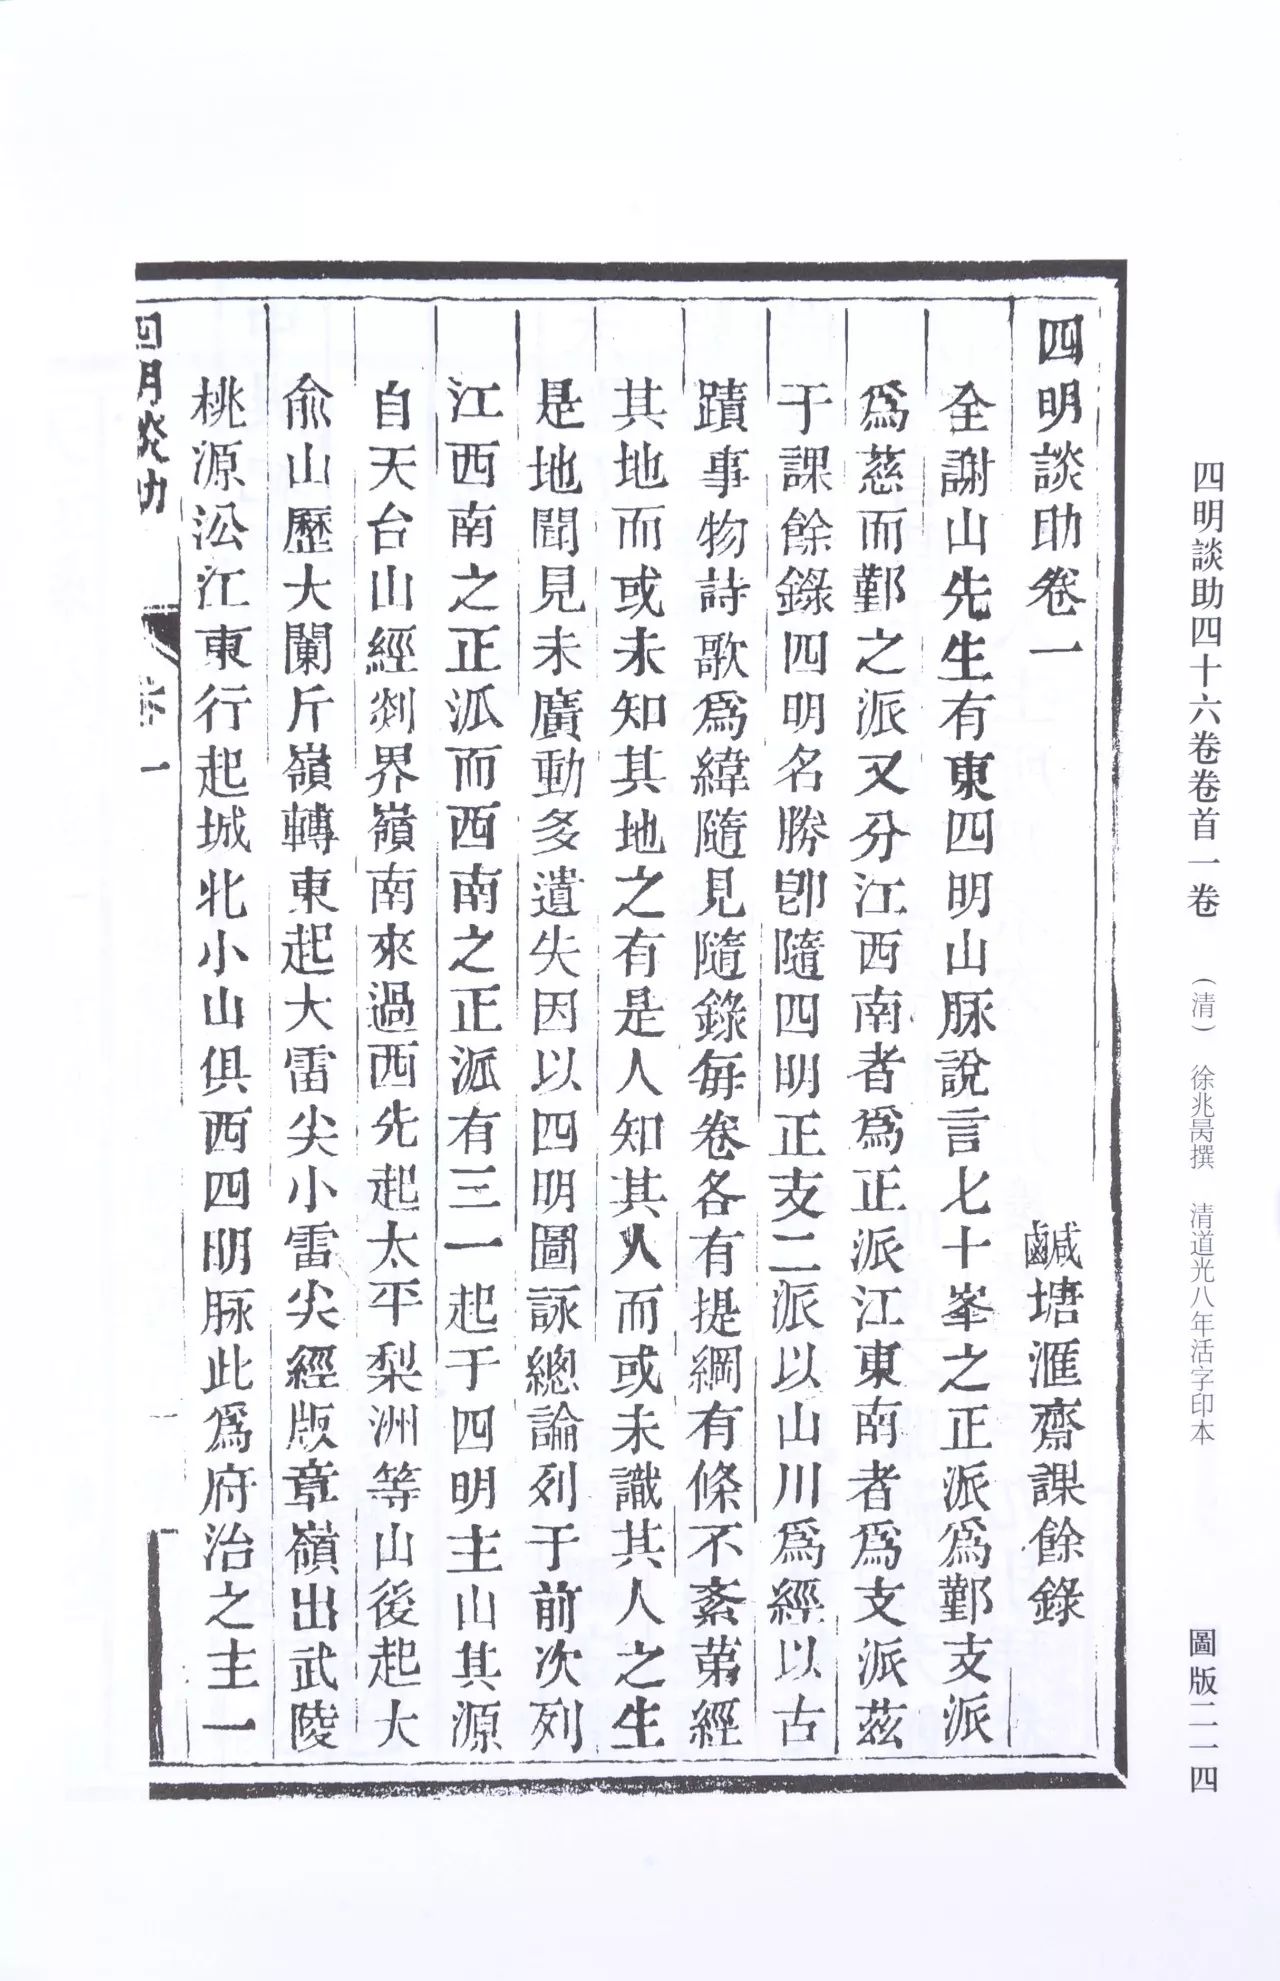 四明談助四十六卷卷首一卷　（清）　徐兆昺撰　清道光八年活字印本　圖版二一四
四明談助卷一　鹹塘滙齋課餘錄
全謝山先生有東四明山脉說言七十峯之正派爲鄞支派
爲慈而鄞之派又分江西南者爲正派江東南者爲支派茲
于課餘錄四明名勝卽隨四明正支二派以山川爲經以古
蹟事物詩歌爲緯隨見隨錄每卷各有提綱有條不紊苐經
其地而或未知其地之有是人知其人而或未識其人之生
是地聞見未廣動多遺失因以四明圖詠總論列于前次列
江西南之正派而西南之正派有三一起于四明主山其源
自天台山經剡界嶺南來過西先起太平梨洲等山後起大
俞山歷大闌斤嶺轉東起大雷尖小雷尖經版章嶺出武陵
桃源㳂江東行起城北小山俱西四明脉此爲府治之主一
四明談助　卷一　一